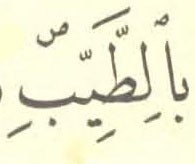 بِاٱلطَّيِّبِۖ